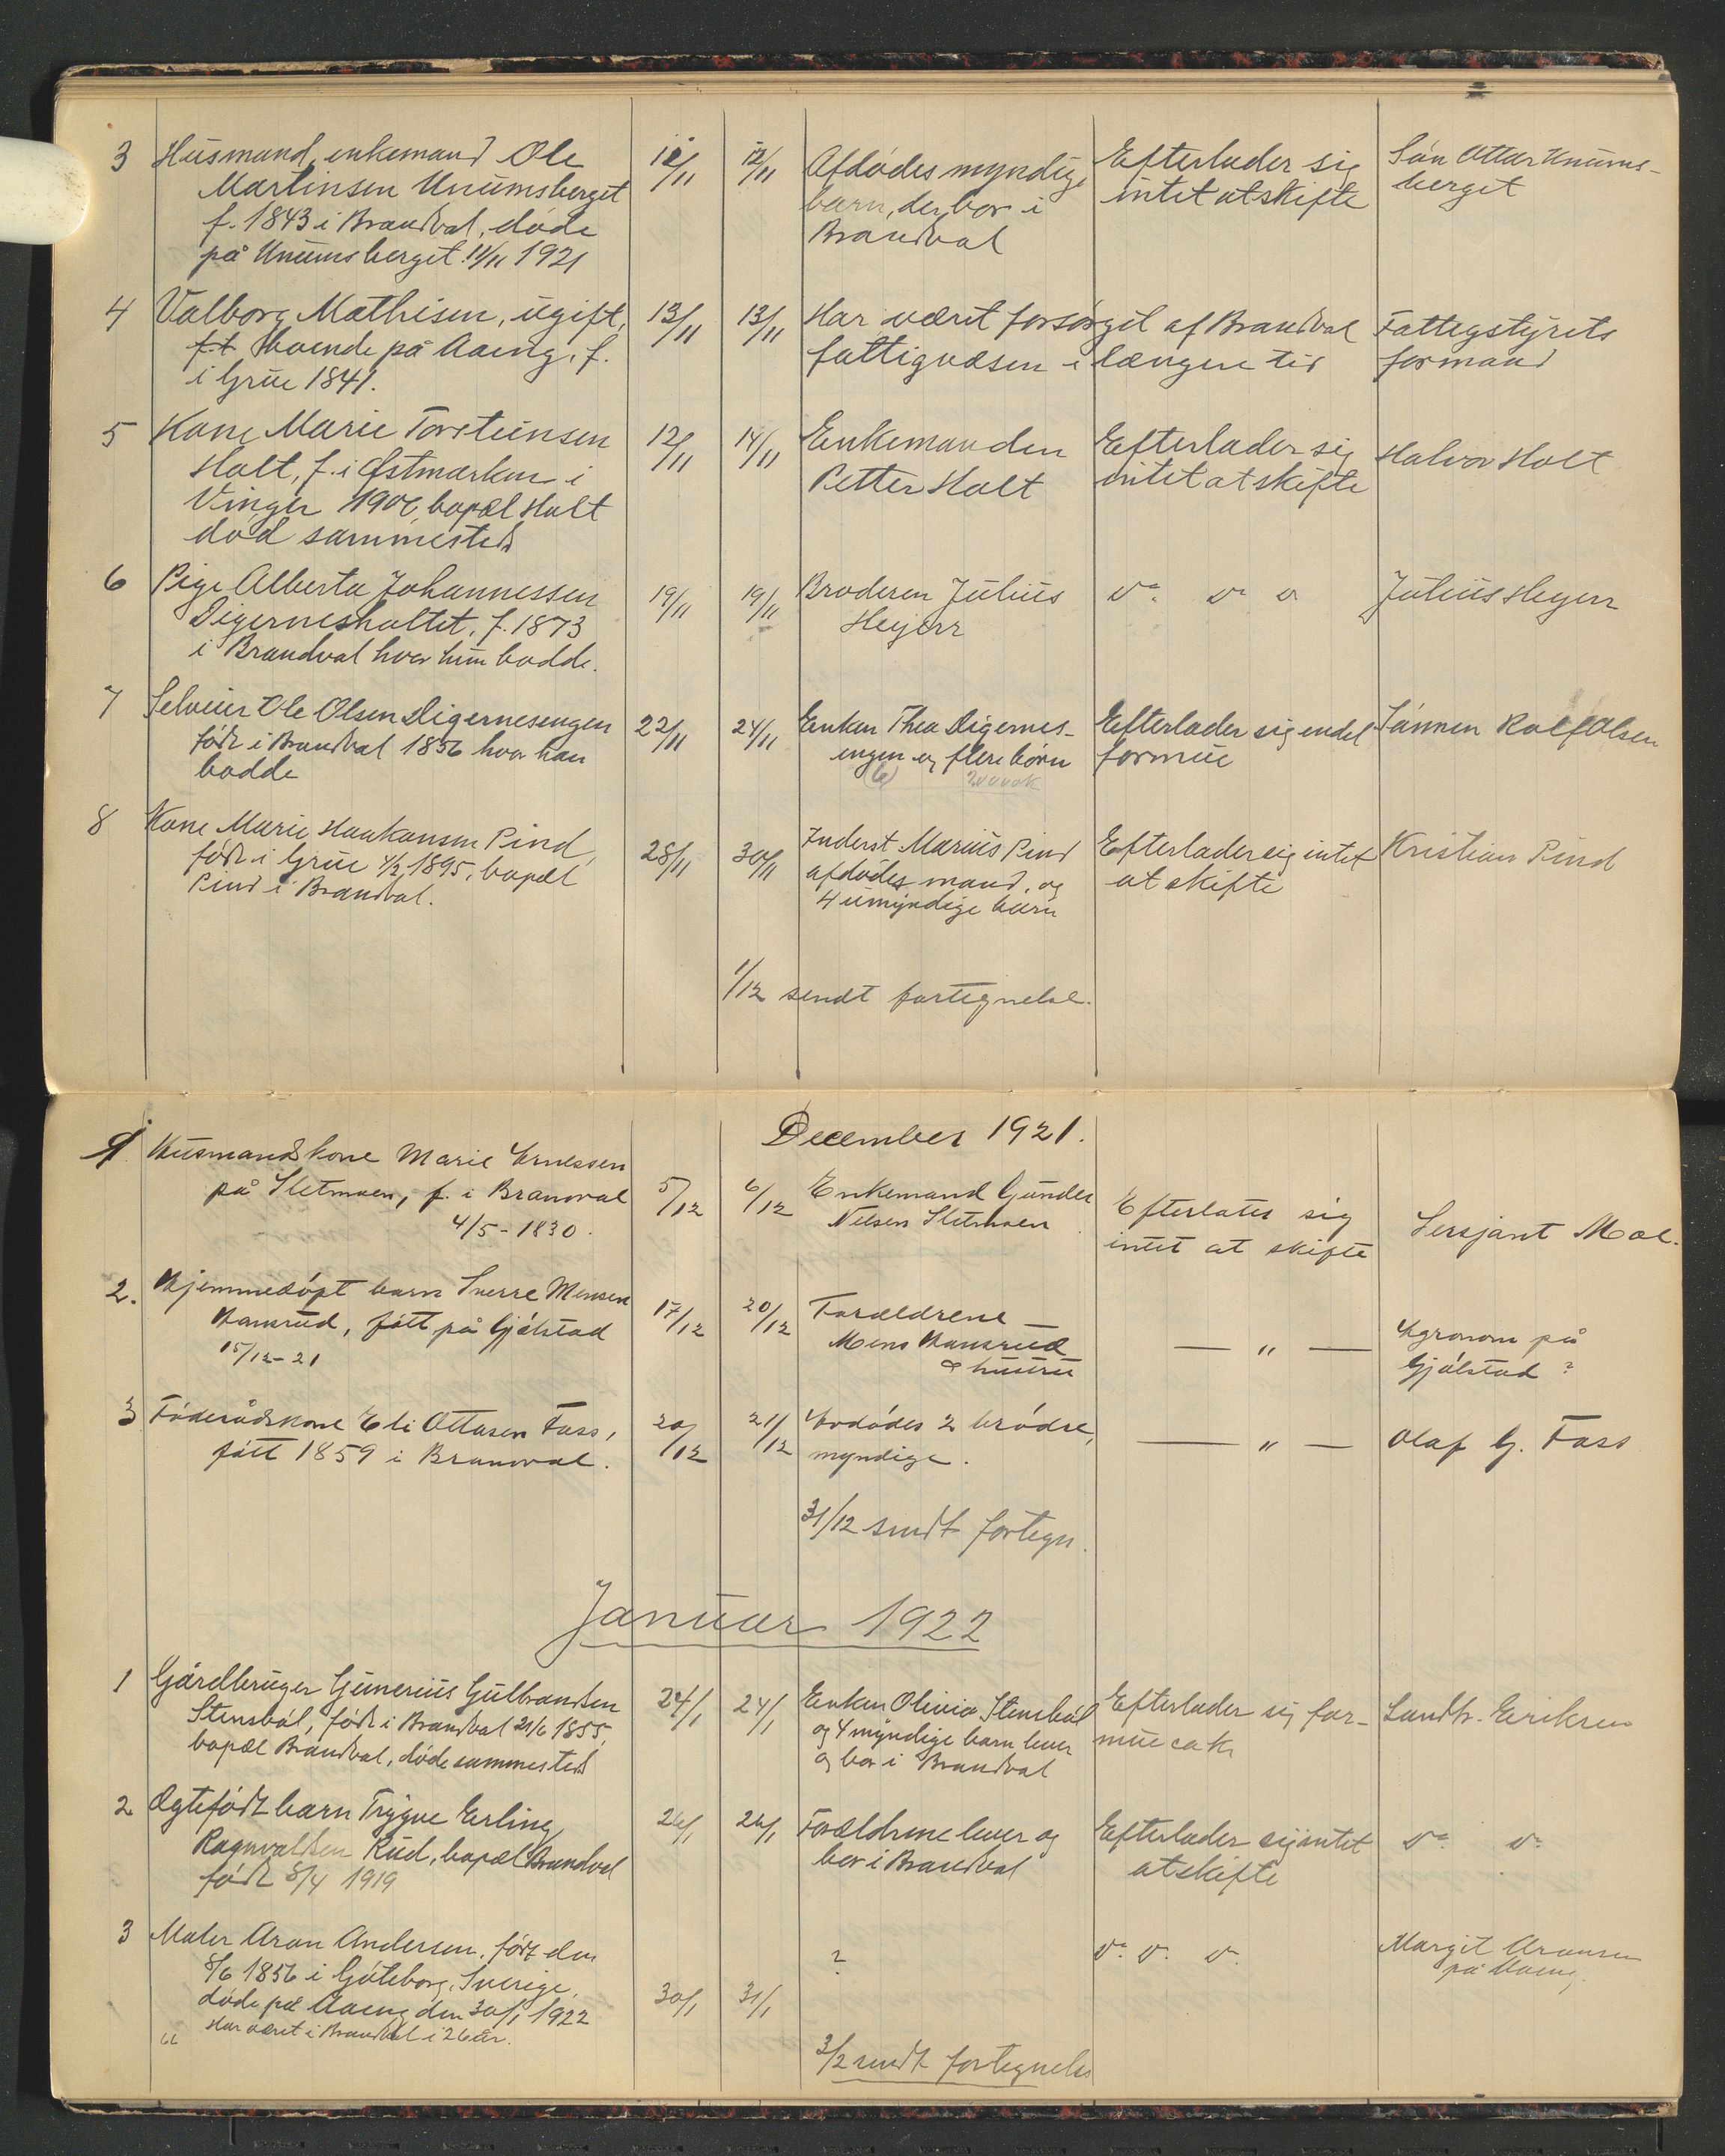 3 Husmand, enkemand Ole 12/11 12/11 Afdødes myndige Efterlader sig Søn Ottar Unums-
Martinsen Unumsberget børn, der bor i intet at skifte berget
f. 1843 i Brandval, døde Brandval
på Unumsberget 11/11 1921
4 Valborg Mathisen, ugift, 13/11 13/11 Har været forsørget af Brandval Fattigstyrets
boende på Aaeng, f. fattigvæsen i længere tid formand
i Grue 1841.
5 Kone Marie Torsteinsen 12/11 14/11 Enkemanden Efterlader sig Halvor Holt
Holt, f. i Østmarken i Petter Holt intet at skifte
Vinger bopæl Holt
død sammesteds
6 Pige Alberta Johannessen 19/11 19/11 Broderen Julius do. do do Julius Hejerr
Digernesholtet, f. 1873 Hejerr
i Brandval hvor hun bodde.
7 Selveier Ole Olsen Digernesengen 22/11 24/11 Enken Thea Digernes- Efterlader sig endel Sønnen Rolf Olsen
født i Brandval 1856 hvor han engen og flere børn formue
bodde (6) 2000 k
8 Kone Marie Haakonsen Pind, 28/11 30/11 Inderst Marius Pind Efterlader sig intet Kristian Pind
født i Grue 4/2 1895, bopæl afdødes mand, og at skifte
Pind i Brandval. 4 umyndige børn
1/12 sendt fortegnelse.
December 1921.
1 Husmandskone Marie Arnessen 5/12 6/12 Enkemand Gunder Efterlater sig Sersjant Moe.
på Sletmoen, f. i Brandval Nilsen Sletmoen intet at skifte
4/5-1830.
2. Hjemmedøpt barn Sverre Mensen 17/12 20/12 Forældrene — " — Agronom på
Hansrud, født på Gjølstad Mens Hansrud Gjølstad ?
15/12-21 & hustru
3 Føderådskone Eli Ottosen Foss, 20/12 21/12 Avdødes 2 brødre, — " — Olaf G. Foss
født 1859 i Brandval. myndige.
31/12 sendt fortegn.
Januar 1922
1 Gårdbruger Gunerius Gulbrandsen 24/1 24/1 Enken Olivia Stensbøl Efterlader sig for- Landh. Eriksen
Stensbøl, født i Brandval 21/6 1855, og 4 myndige barn lever mue ca k
bopæl Brandval, døde sammesteds og bor i Brandval
2 Ægtefødt barn Trygve Erling 26/1 26/1 Forældrene lever og Efterlader sig intet do. do.
Ragnvaldsen Rud, bopæl Brandval bor i Brandval at skifte
født 8/4 1919
3 Maler Aron Andersen, født den ? do. do. do. Margit Aronsen
8/6 1856 i Gøteborg, Sverige, på Aaeng.
døde på Aaeng den 30/1 1922 30/1 31/1
Har været i Brandval i 26 år.
66
3/2 sendt fortegnelse